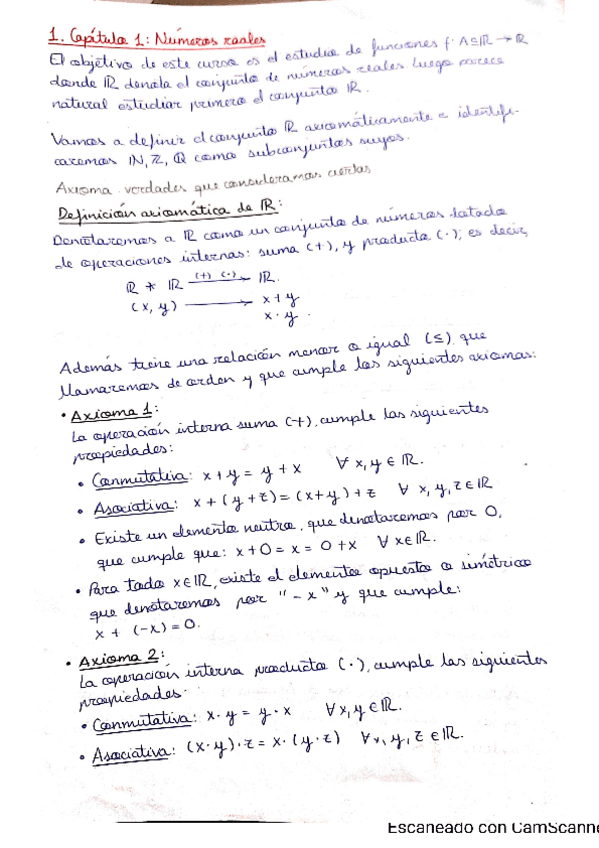 1. Capítulo 1: Números reales
El objetivo de este curso es el estudio de funciones f: A⊆ℝ → ℝ
donde ℝ denota el conjunto de números reales. Luego parece
natural estudiar primero el conjunto ℝ.
Vamos a definir el conjunto ℝ axiomáticamente e identifi-
caremos ℕ, ℤ, ℚ como subconjuntos suyos.
Axioma: verdades que consideramos ciertas
Definición axiomática de ℝ:
Denotaremos a ℝ como un conjunto de números dotado
de operaciones internas: suma (+), y producto (·); es decir,
ℝ * ℝ (+) (·) → ℝ.
(x, y) → x + y
x · y .
Además tiene una relación menor o igual (≤) que
llamaremos de orden y que cumple los siguientes axiomas:
• Axioma 1:
La operación interna suma (+), cumple las siguientes
propiedades:
• Conmutativa: x + y = y + x ∀ x, y ∈ ℝ.
• Asociativa: x + (y + z) = (x + y) + z ∀ x, y, z ∈ ℝ
• Existe un elemento neutro, que denotaremos por 0,
que cumple que: x + 0 = x = 0 + x ∀ x ∈ ℝ.
• Para todo x ∈ ℝ, existe el elemento opuesto o simétrico
que denotaremos por "- x" y que cumple:
x + (-x) = 0.
• Axioma 2:
La operación interna producto (·), cumple las siguientes
propiedades:
• Conmutativa: x · y = y · x ∀ x, y ∈ ℝ.
• Asociativa: (x · y) · z = x · (y · z) ∀ x, y, z ∈ ℝ.
Escaneado con CamScanne